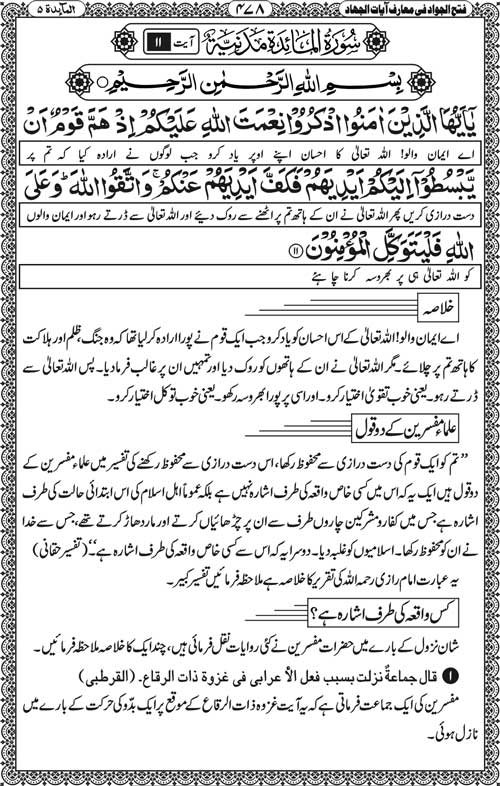 فتح الجواد فی معارف آیات الجہاد ۳۷۸ المآیدۃ ۵
سُوْرَۃُ الْمَائِدَۃِ مَدَنِیَّۃٌ آیت ۱۱
بِسْمِ اللهِ الرَّحْمٰنِ الرَّحِیْمِ
یٰۤاَیُّهَا الَّذِیْنَ اٰمَنُوا اذْكُرُوْا نِعْمَتَ اللهِ عَلَیْكُمْ اِذْ هَمَّ قَوْمٌ اَنْ
اے ایمان والو! اللہ تعالیٰ کا احسان اپنے اوپر یاد کرو جب لوگوں نے ارادہ کیا کہ تم پر
یَّبْسُطُوْۤا اِلَیْكُمْ اَیْدِیَهُمْ فَكَفَّ اَیْدِیَهُمْ عَنْكُمْ ۚ وَاتَّقُوا اللهَ ؕ وَعَلَی
دست درازی کریں پھر اللہ تعالیٰ نے ان کے ہاتھ تم پر اٹھنے سے روک دیئے اور اللہ تعالیٰ سے ڈرتے رہو اور ایمان والوں
اللهِ فَلْیَتَوَكَّلِ الْمُؤْمِنُوْنَ ۱۱
کو اللہ تعالیٰ ہی پر بھروسہ کرنا چاہئے
خلاصہ
اے ایمان والو! اللہ تعالیٰ کے اس احسان کو یاد کرو جب ایک قوم نے پورا ارادہ کر لیا تھا کہ وہ جنگ، ظلم اور ہلاکت
کا ہاتھ تم پر چلائے۔ مگر اللہ تعالیٰ نے ان کے ہاتھوں کو روک دیا اور تمہیں ان پر غالب فرما دیا۔ پس اللہ تعالیٰ سے
ڈرتے رہو۔ یعنی خوب تقویٰ اختیار کرو۔ اور اسی پر پورا بھروسہ رکھو۔ یعنی خوب توکل اختیار کرو۔
علماء مفسرین کے دو قول
”تم کو ایک قوم کی دست درازی سے محفوظ رکھا، اس دست درازی سے محفوظ رکھنے کی تفسیر میں علماء مفسرین کے
دو قول ہیں ایک یہ کہ اس میں کسی خاص واقعہ کی طرف اشارہ نہیں ہے بلکہ عموماً اہل اسلام کی اس ابتدائی حالت کی طرف
اشارہ ہے جس میں کفار و مشرکین چاروں طرف سے ان پر چڑھائیاں کرتے اور مار دھاڑ کرتے تھے، جس سے خدا
نے ان کو محفوظ رکھا۔ اسلامیوں کو غلبہ دیا۔ دوسرا یہ کہ اس سے کسی خاص واقعہ کی طرف اشارہ ہے“۔ (تفسیر حقانی)
یہ عبارت امام رازی رحمہ اللہ کی تقریر کا خلاصہ ہے ملاحظہ فرمائیں تفسیر کبیر۔
کس واقعہ کی طرف اشارہ ہے؟
شان نزول کے بارے میں حضرات مفسرین نے کئی روایات نقل فرمائی ہیں، چند ایک کا خلاصہ ملاحظہ فرمائیں۔
۱ قال جماعةٌ نزلت بسبب فعل الأعرابی فی غزوة ذات الرقاع۔ (القرطبی)
مفسرین کی ایک جماعت فرماتی ہے کہ یہ آیت غزوہ ذات الرقاع کے موقع پر ایک بدّو کی حرکت کے بارے میں
نازل ہوئی۔